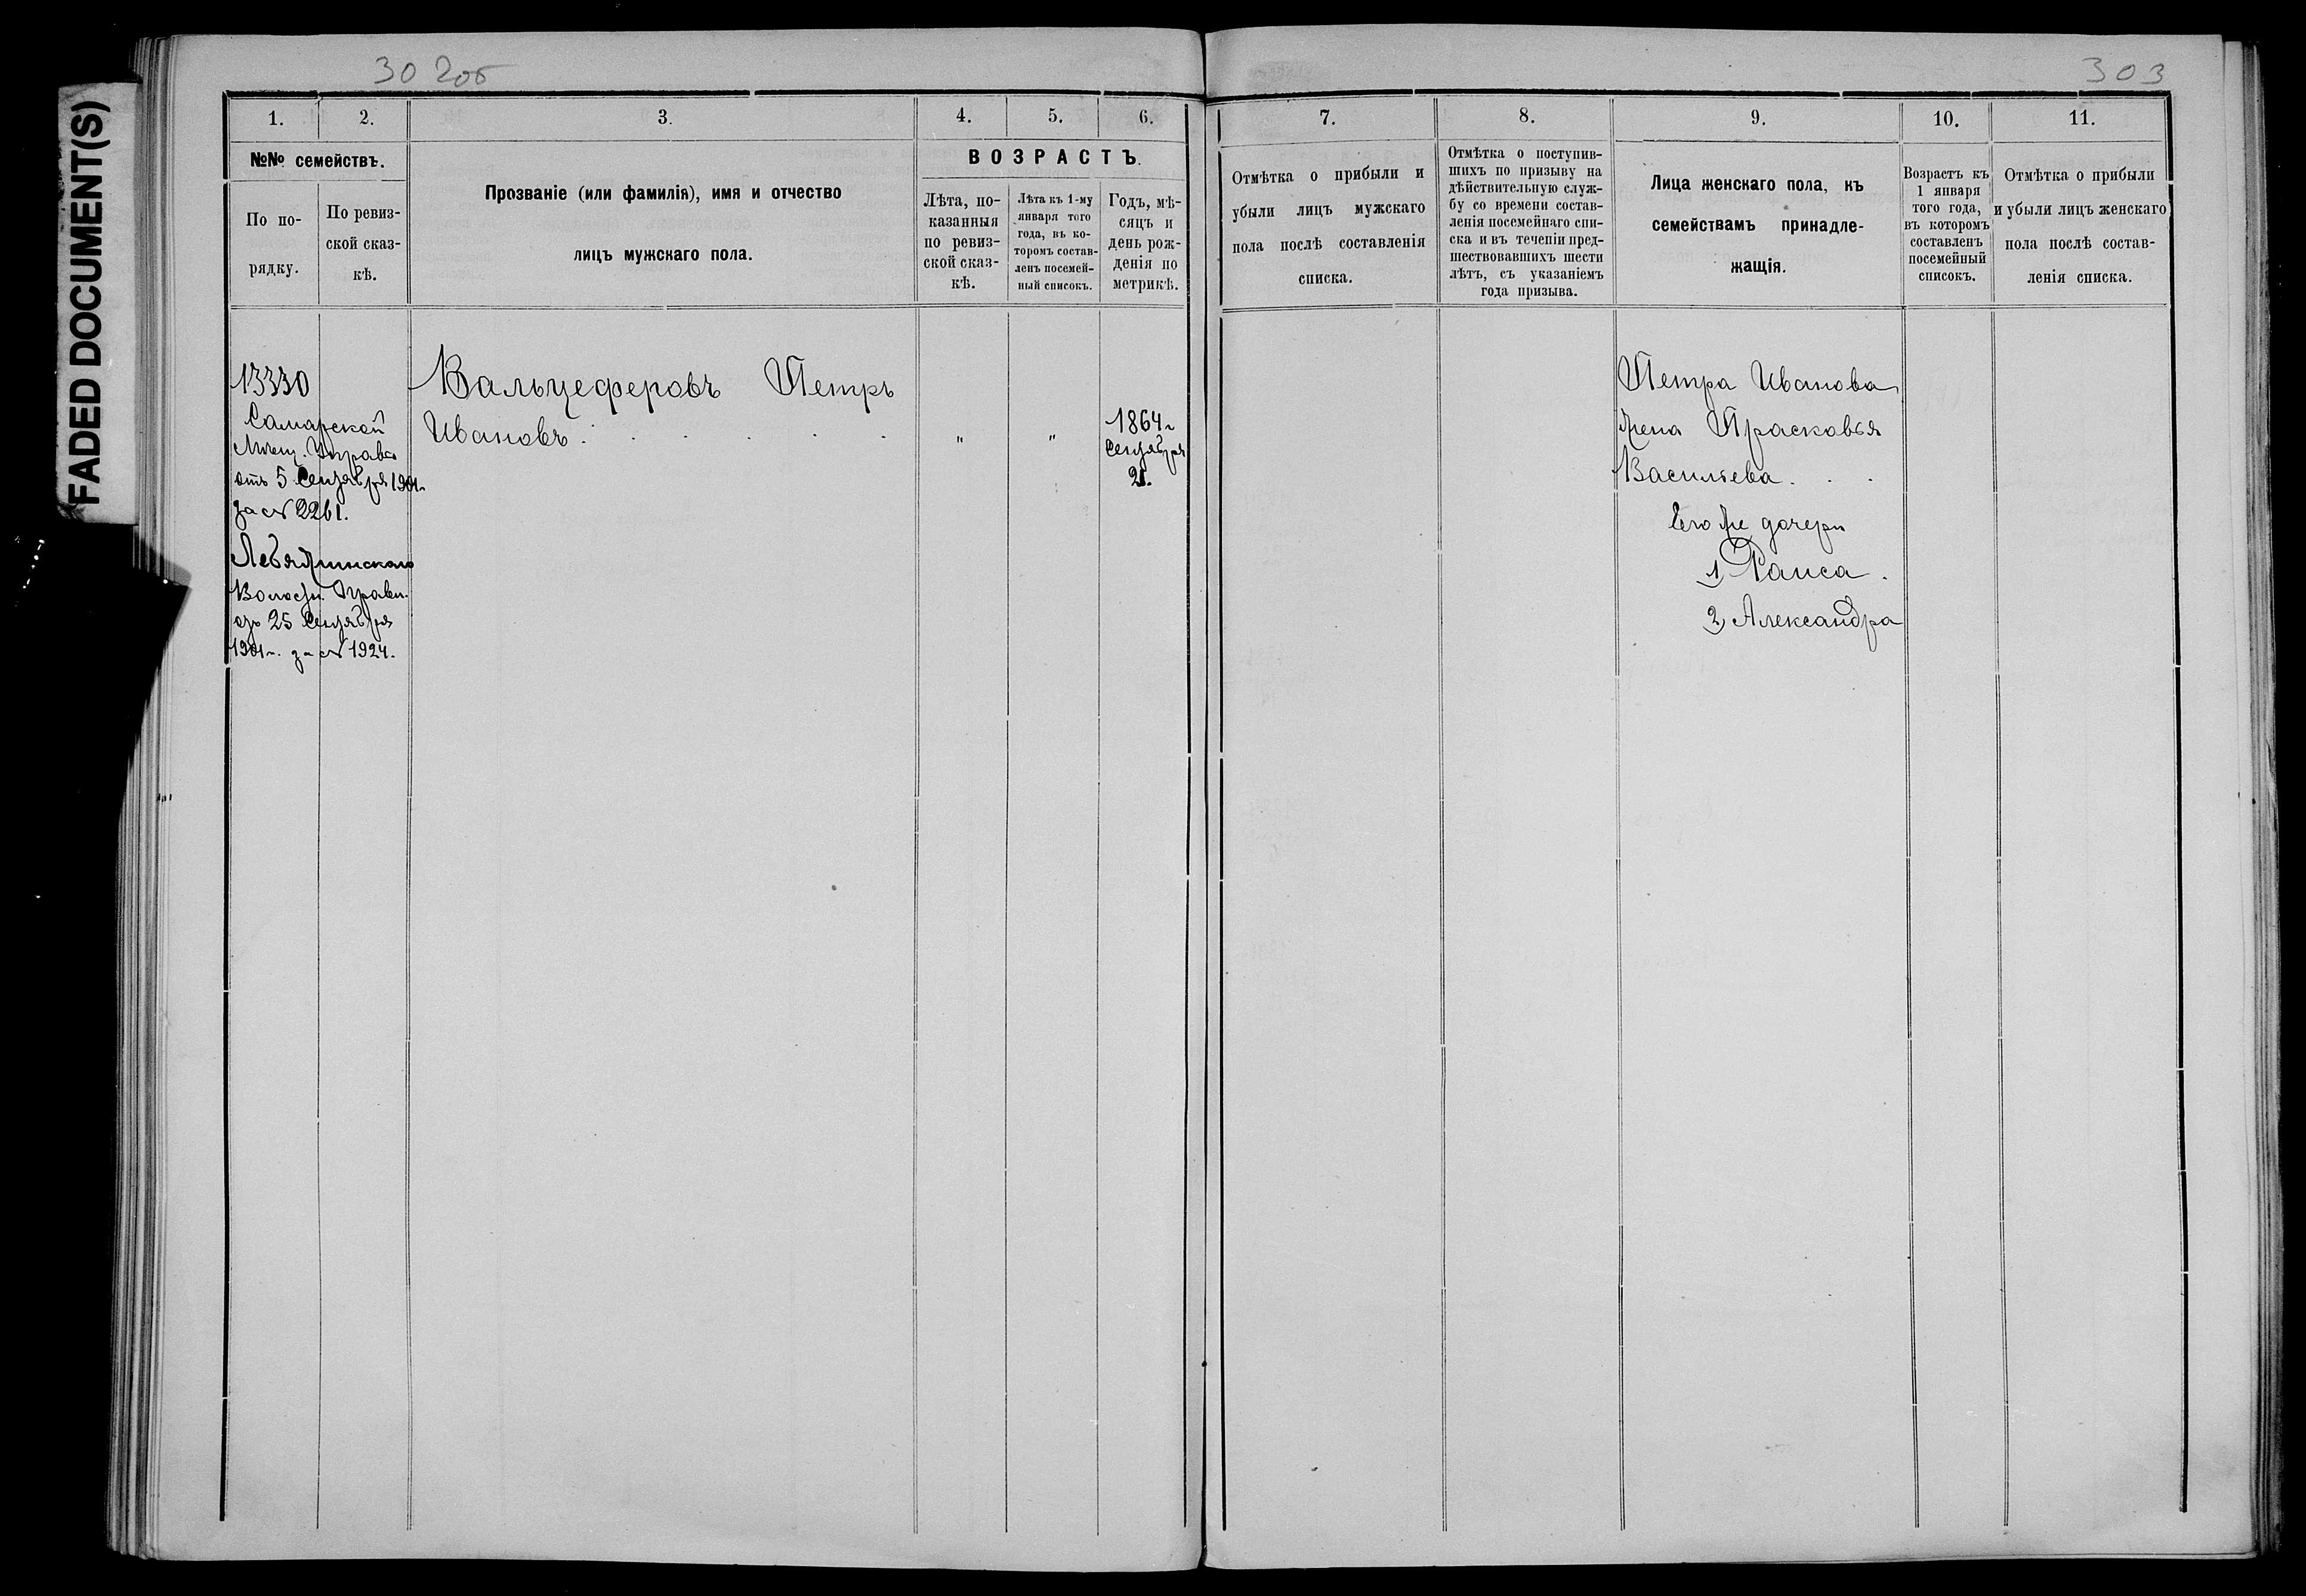 FADED DOCUMENT(S)
302об
303
1.
2.
3.
4.
5.
6.
№№ семействъ.
По по-
рядку.
По ревиз-
ской сказ-
кѣ.
Прозваніе (или фамилія), имя и отчество
лицъ мужскаго пола.
ВОЗРАСТЪ.
Лѣта, по-
казанныя
по ревиз-
ской сказ-
кѣ.
Лѣта къ 1-му
января того
года, въ ко-
торомъ состав-
ленъ посемей-
ный списокъ.
Годъ, мѣ-
сяцъ и
день рож-
денія по
метрикѣ.
13330
Самарской
Мѣщ. Управы
отъ 5 Сентября 1901 г.
за № 2261.
Лебяжинскаго
Волостн. Правл.
отъ 25 Сентября
1901 г. за № 1924.
Вальцеферовъ Петръ
Ивановъ . . . . .
"
"
1864 г
Сентября
21.
7.
8.
9.
10.
11.
Отмѣтка о прибыли и
убыли лицъ мужскаго
пола послѣ составленія
списка.
Отмѣтка о поступив-
шихъ по призыву на
дѣйствительную служ-
бу со времени состав-
ленія посемейнаго спи-
ска и въ теченіи пред-
шествовавшихъ шести
лѣтъ, съ указаніемъ
года призыва.
Лица женскаго пола, къ
семействамъ принадле-
жащія.
Возрастъ къ
1 января
того года,
въ которомъ
составленъ
посемейный
списокъ.
Отмѣтка о прибыли
и убыли лицъ женскаго
пола послѣ состав-
ленія списка.
Петра Иванова
жена Прасковья
Васильева . . .
Его же дочери
1) Раиса.
2) Александра